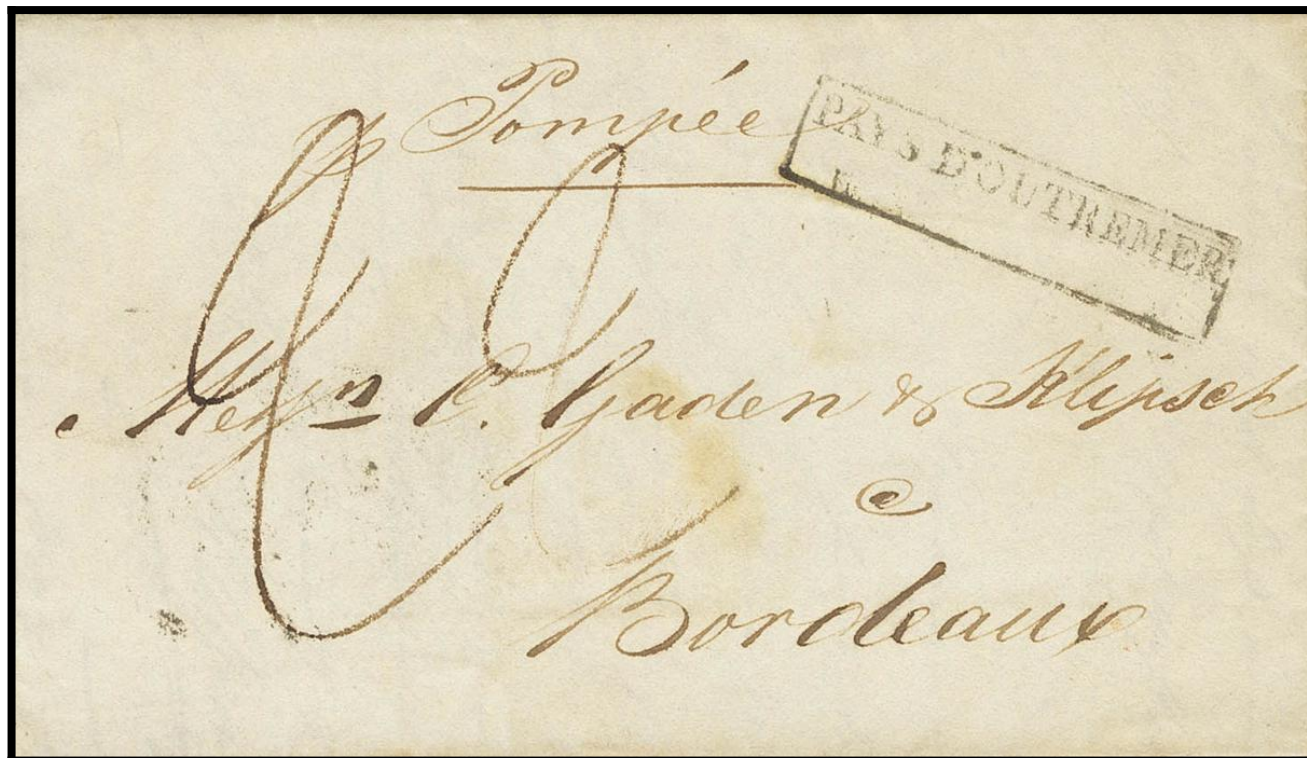 Pompée
PAYS D'OUTREMER
Messrs P. Gaden & Klipsch
a
Bordeaux